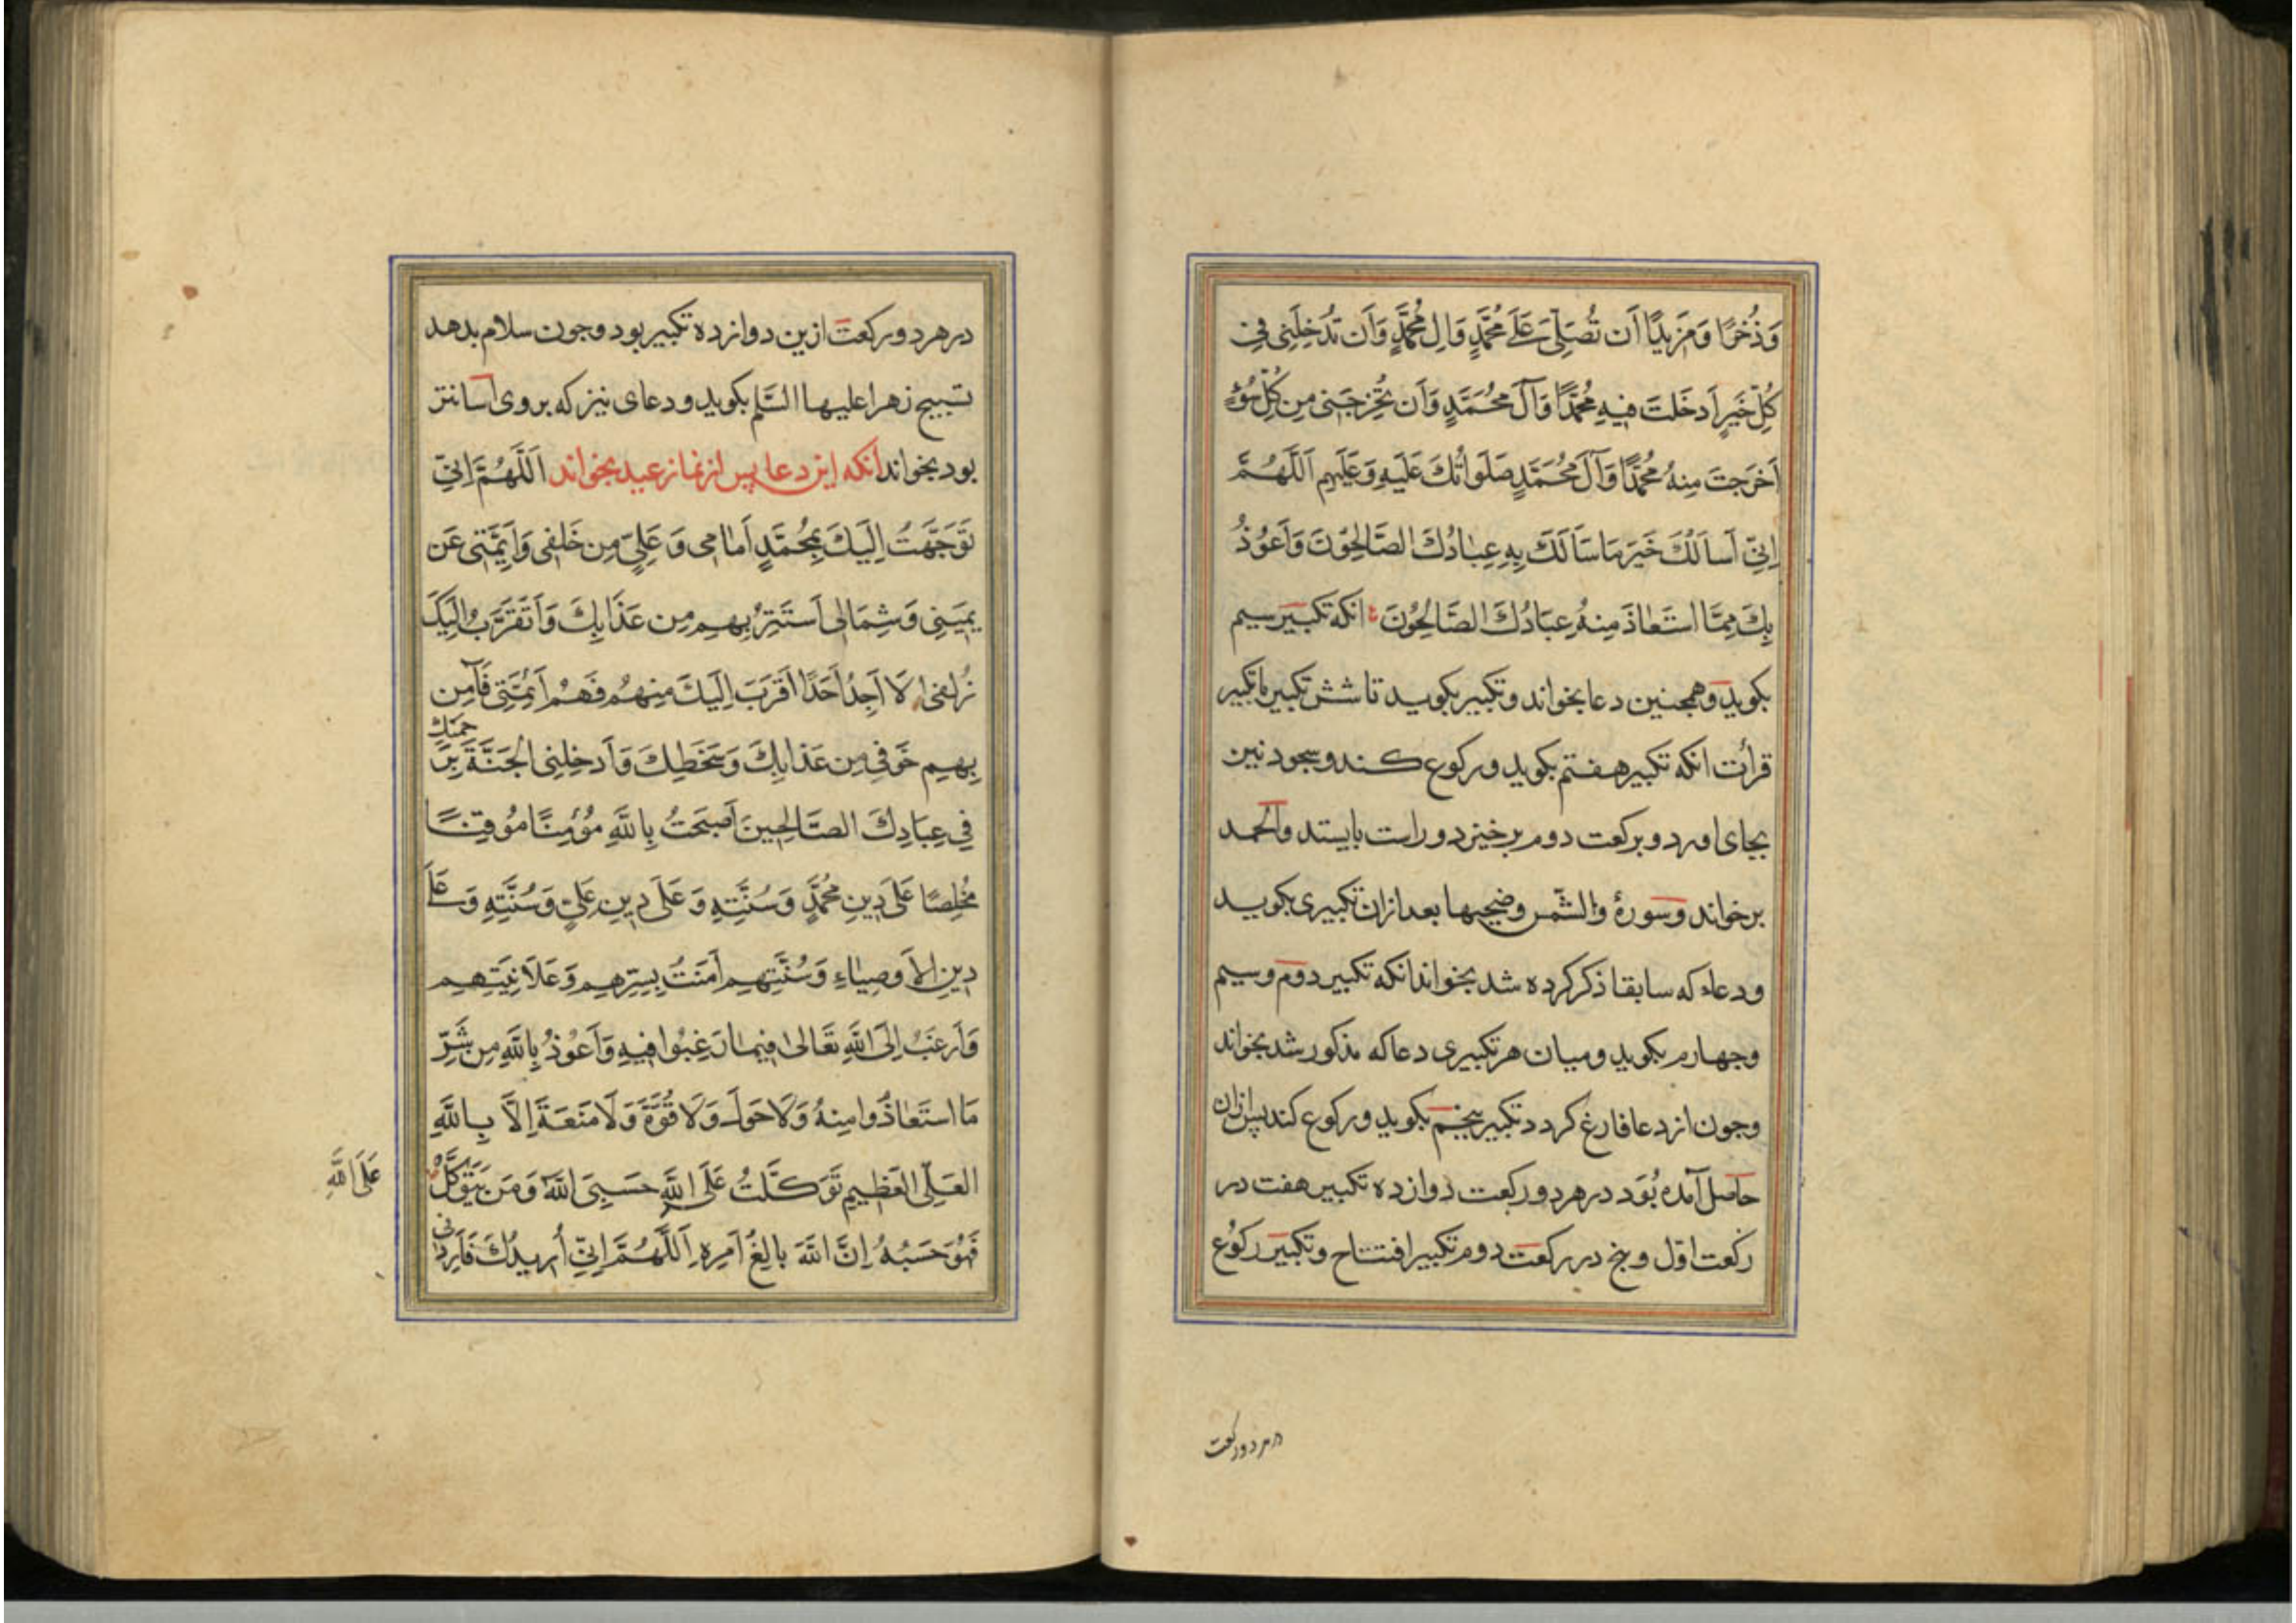 وَذُخْرًا وَمَزِيدًا اَن تُصَلِّىَ عَلَى مُحَمَّدٍ وَالِ مُحَمَّدٍ وَاَن تُدْخِلَنِى فِى
كُلِّ خَيرٍ اَدخَلتَ فِيهِ مُحَمَّدًا وَآلَ مُحَمَّدٍ وَاَن تُخرِجَنِى مِن كُلِّ سُوۤءٍ
اَخرَجتَ مِنهُ مُحَمَّدًا وَآلَ مُحَمَّدٍ صَلَوَاتُكَ عَلَيهِ وَعَلَيهِم اَللَّهُمَّ
اِنِّى اَسأَلُكَ خَيرَ مَا سَاَلَكَ بِهِ عِبَادُكَ الصَّالِحُونَ وَاَعُوذُ
بِكَ مِمَّا استَعَاذَ مِنهُ عِبَادُكَ الصَّالِحُونَ انكه تكبير سيم
بكويد وهمجنين دعا بخواند وتكبير بكويد تا شش تكبير با تكبير
قرأت انكه تكبير هفتم بكويد وركوع كند وسجود نين
بجاى اورد وبركعت دوم برخيزد وراست بايستد والحمد
برخواند وسورۀ والشّمس وضحيها بعد ازان تكبيرى بكويد
ودعاء كه سابقا ذكر كرده شد بخواند انكه تكبير دوم وسيم
وجهارم بكويد وميان هر تكبيرى دعا كه مذكور شد بخواند
وجون از دعا فارغ كردد تكبير پنجم بكويد وركوع كند پس ازان
حاصل آمده بُوَد در هر دو ركعت دوازده تكبير هفت در
ركعت اوّل وپنج در ركعت دوم تكبير افتتاح وتكبير ركوع
در هر دو ركعت
در هر دو ركعت ازين دوازده تكبير بود وجون سلام بدهد
تسبيح زهرا عليها السّلم بكويد ودعاى نيز كه بروى اسانتر
بود بخواند انكه اين دعا پس از نماز عيد بخواند اَللَّهُمَّ اِنِّى
تَوَجَّهتُ اِلَيكَ بِمُحَمَّدٍ اَمَامِى وَ عَلِيٍّ مِن خَلفِى وَاَئِمَّتِى عَن
يَمِينِى وَشِمَالِى اَستَتِرُ بِهِم مِن عَذَابِكَ وَاَتَقَرَّبُ اِلَيكَ
زُلفَى لَا اَجِدُ اَحَدًا اَقرَبَ اِلَيكَ مِنهُم فَهُم اَئِمَّتِى فَآمِن
بِهِم خَوفِى مِن عَذَابِكَ وَسَخَطِكَ وَاَدخِلنِى الجَنَّةَ بِرَحمَتِكَ
فِى عِبَادِكَ الصَّالِحِينَ اَصبَحتُ بِاللَّهِ مُؤمِنًا مُوقِنًا
مُخلِصًا عَلَى دِينِ مُحَمَّدٍ وَسُنَّتِهِ وَ عَلَى دِينِ عَلِيٍّ وَسُنَّتِهِ وَعَلَى
دِينِ الاَوصِيَاءِ وَسُنَّتِهِم آمَنتُ بِسِرِّهِم وَعَلَانِيَتِهِم
وَاَرغَبُ اِلَى اللَّهِ تَعَالىٰ فِيمَا رَغِبُوا فِيهِ وَاَعُوذُ بِاللَّهِ مِن شَرِّ
مَا استَعَاذُوا مِنهُ وَلَا حَولَ وَلَا قُوَّةَ وَلَا مَنَعَةَ اِلاَّ بِاللَّهِ
العَلِىِّ العَظِيمِ تَوَكَّلتُ عَلَى اللَّهِ حَسبِىَ اللَّهُ وَمَن يَتَوَكَّل
عَلَى اللَّهِ
فَهُوَ حَسبُهُ اِنَّ اللَّهَ بَالِغُ اَمرِهِ اَللَّهُمَّ اِنِّى اُرِيدُكَ فَاَرِدنِى